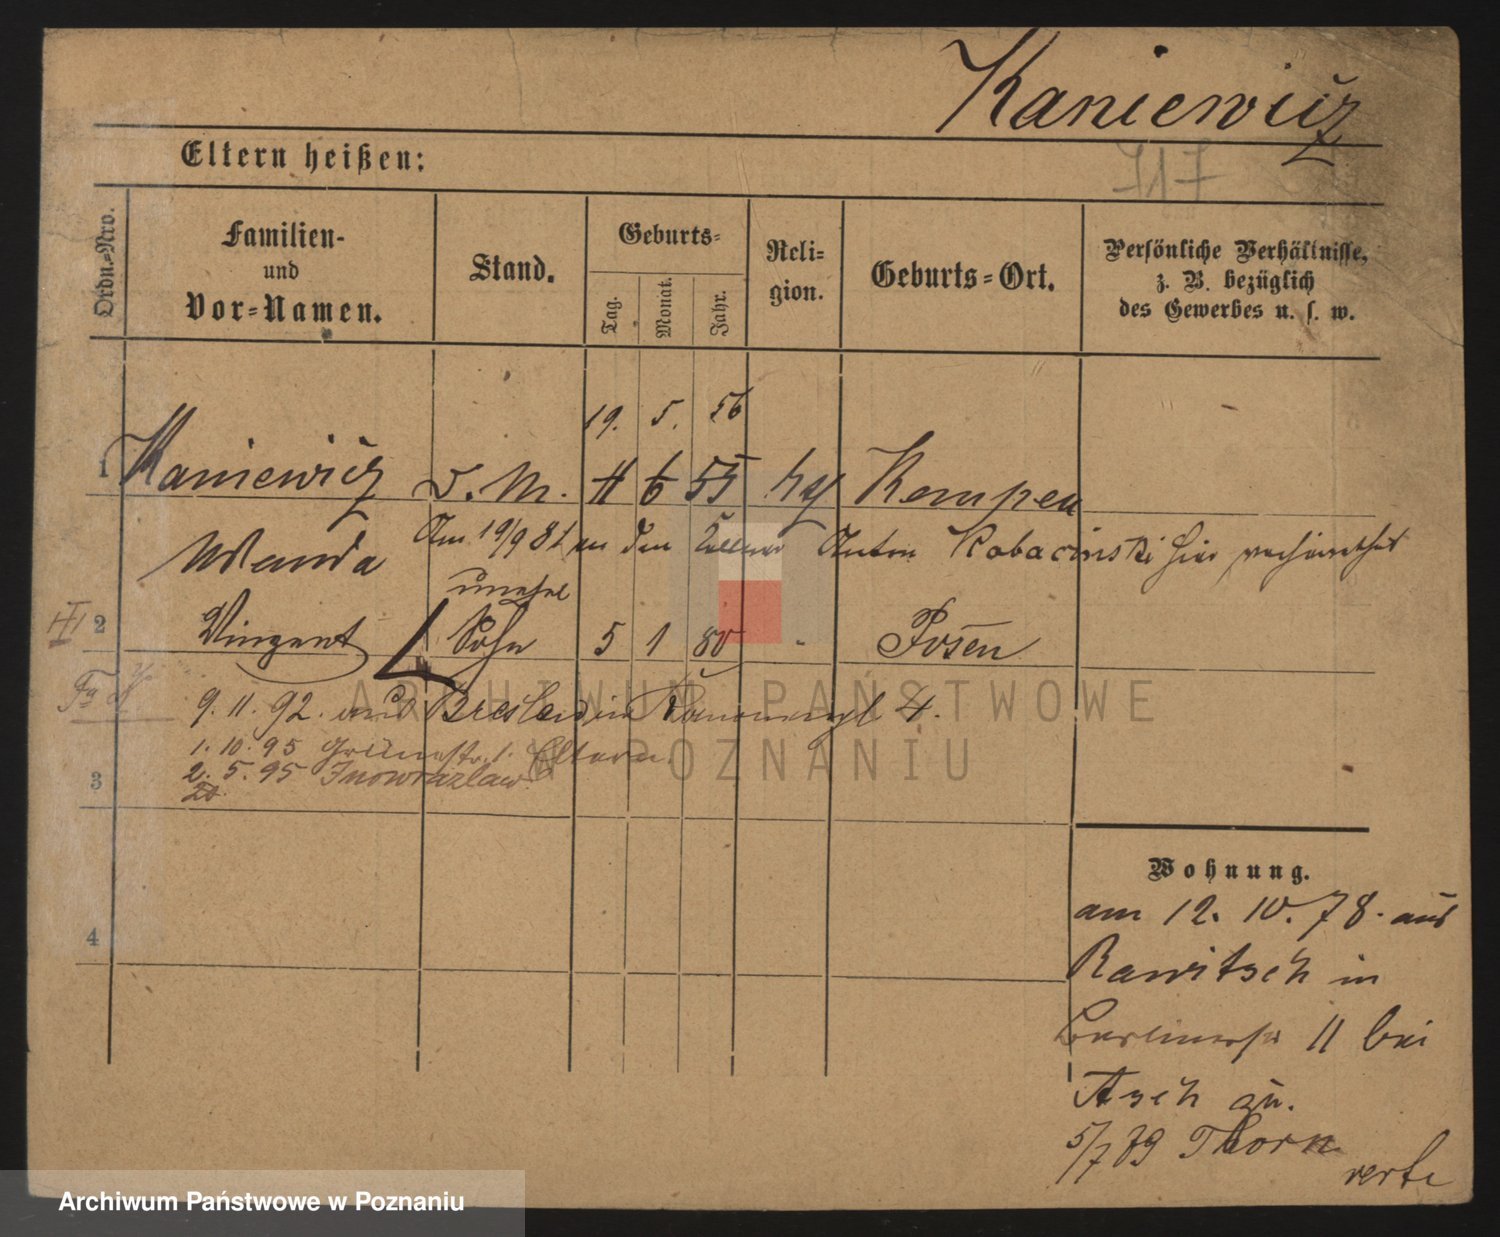 Kaniewicz
Eltern heißen:
Ordn.-Nro.
Familien-
und
Vor=Namen.
Stand.
Geburts=
Tag.
Monat.
Jahr.
Reli=
gion.
Geburts=Ort.
Persönliche Verhältnisse,
z. B. bezüglich
des Gewerbes u. s. w.
19. 5. 56
1 Kaniewicz d. M. 11 6 55 Kempen
Wanda
Am 19/9 81 an den Kellner Anton Robacinski hier verheirathet
unehel
2 Vinzent Sohn 5 1 80 - Posen
9. 11. 92. aus Breslau in 4.
1. 10. 95 Grünestr. 1. Eltern.
2. 5. 95 Inowrazlaw
3
4
Wohnung.
am 12. 10. 78. aus
Rawitsch in
Berlinerstr 11 bei
Asch zu.
5/7 79 Thorn
verte
ARCHIWUM PAŃSTWOWE
W POZNANIU
Archiwum Państwowe w Poznaniu